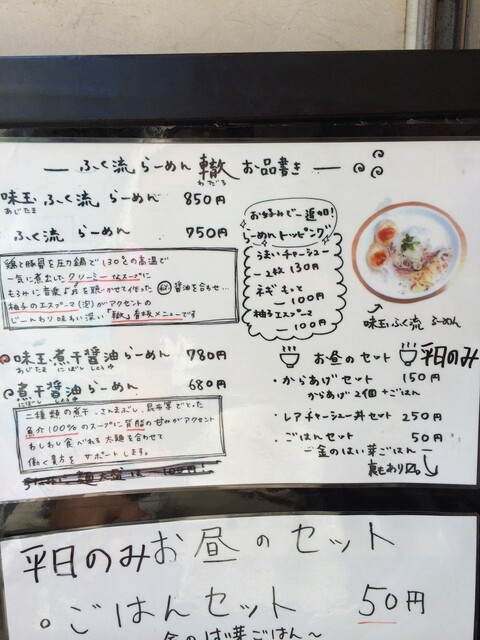 ふく流らーめん 轍 お品書き
わだち
味玉 ふく流 らーめん 850円
あじたま
ふく流 らーめん 750円
鶏と豚骨を圧力鍋で130℃の高温で
一気に煮出した クリーミーなスープに
醤油を合せ…
柚子のエスプーマ(泡)がアクセントの
じーんわり味わい深い「轍」看板メニューです
味玉煮干醤油らーめん 780円
あじたま にぼし しょうゆ
煮干醤油らーめん 680円
にぼし しょうゆ
二種類の煮干、さんまぶし、昆布等でとった
魚介100%のスープに背脂の甘みがアクセント
わしわし食べれる太麺を合わせて
働く貴方をサポートします。
お好みで一追加!
らーめんトッピング
うまいチャーシュー
2枚 130円
ネギもっと
100円
柚子エスプーマ
100円
味玉ふく流 らーめん
お昼のセット 平日のみ
・からあげセット 150円
からあげ2個+ごはん
・レアチャーシュー丼セット 250円
・ごはんセット 50円
~金のはい芽ごはん~
裏もあり〼。
平日のみお昼のセット
○ごはんセット 50円
~金のはい芽ごはん~